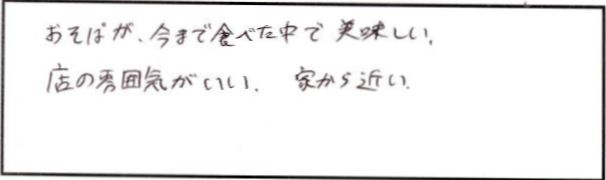 おそばが、今まで食べた中で 美味しい。
店の雰囲気がいい。 家から近い。